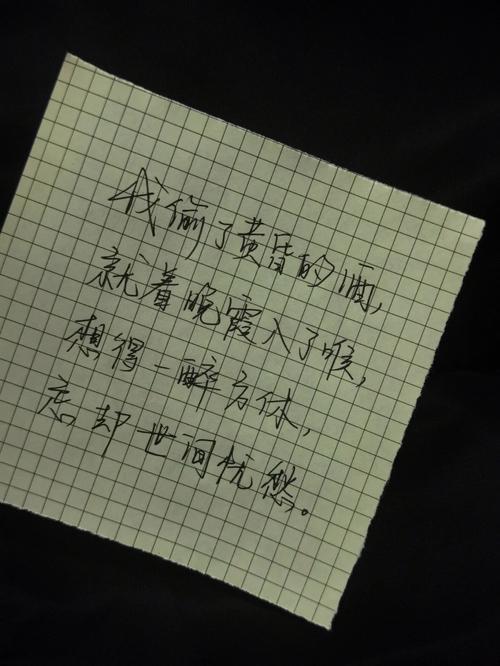 我偷了黄昏的酒,
就着晚霞入了喉,
想得一醉方休,
忘却世间忧愁。